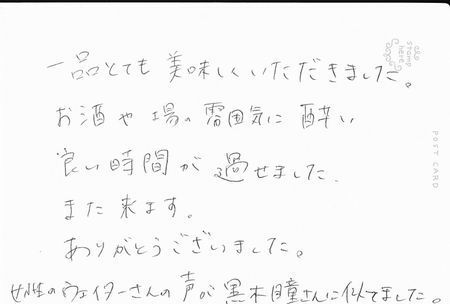 一品とても美味しくいただきました。
お酒や場の雰囲気に酔い
良い時間が過せました。
また来ます。
ありがとうございました。
女性のウェイターさんの声が黒木瞳さんに似てました。
STAMP
HERE
POST CARD